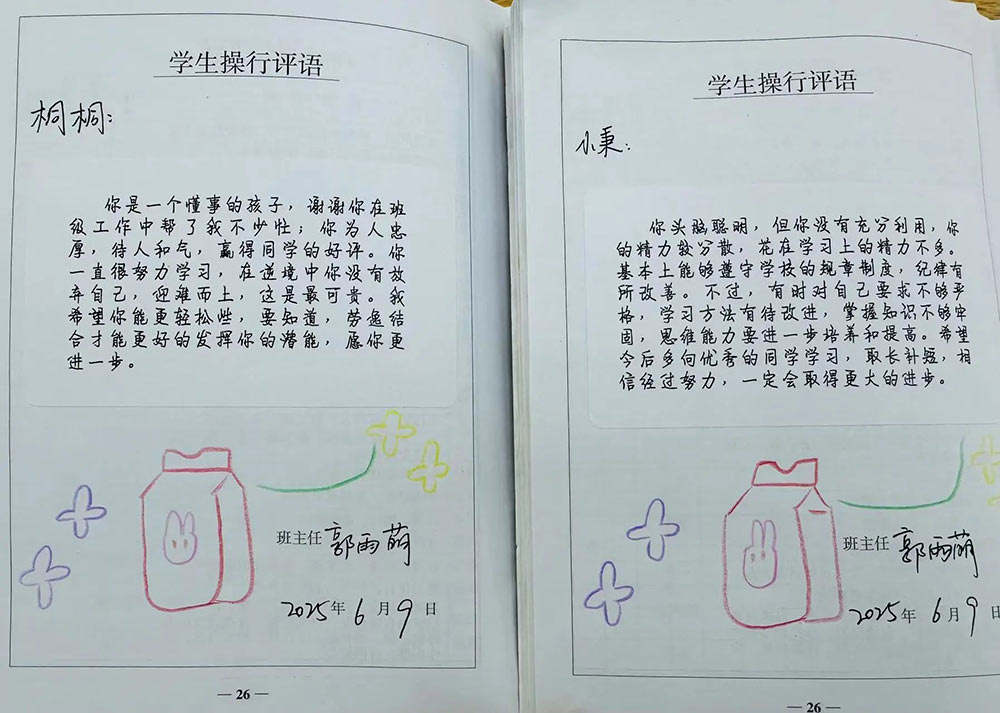 学生操行评语
桐桐：
你是一个懂事的孩子，谢谢你在班
级工作中帮了我不少忙；你为人忠
厚，待人和气，赢得同学的好评。你
一直很努力学习，在逆境中你没有放
弃自己，迎难而上，这是最可贵。我
希望你能更轻松些，要知道，劳逸结
合才能更好的发挥你的潜能，愿你更
进一步。
班主任 郭雨萌
2025年 6月 9日
— 26 —
学生操行评语
小秉：
你头脑聪明，但你没有充分利用，你
的精力较分散，花在学习上的精力不多。
基本上能够遵守学校的规章制度，纪律有
所改善。不过，有时对自己要求不够严
格，学习方法有待改进，掌握知识不够牢
固，思维能力要进一步培养和提高。希望
今后多向优秀的同学学习，取长补短，相
信经过努力，一定会取得更大的进步。
班主任 郭雨萌
2025年 6月 9日
— 26 —